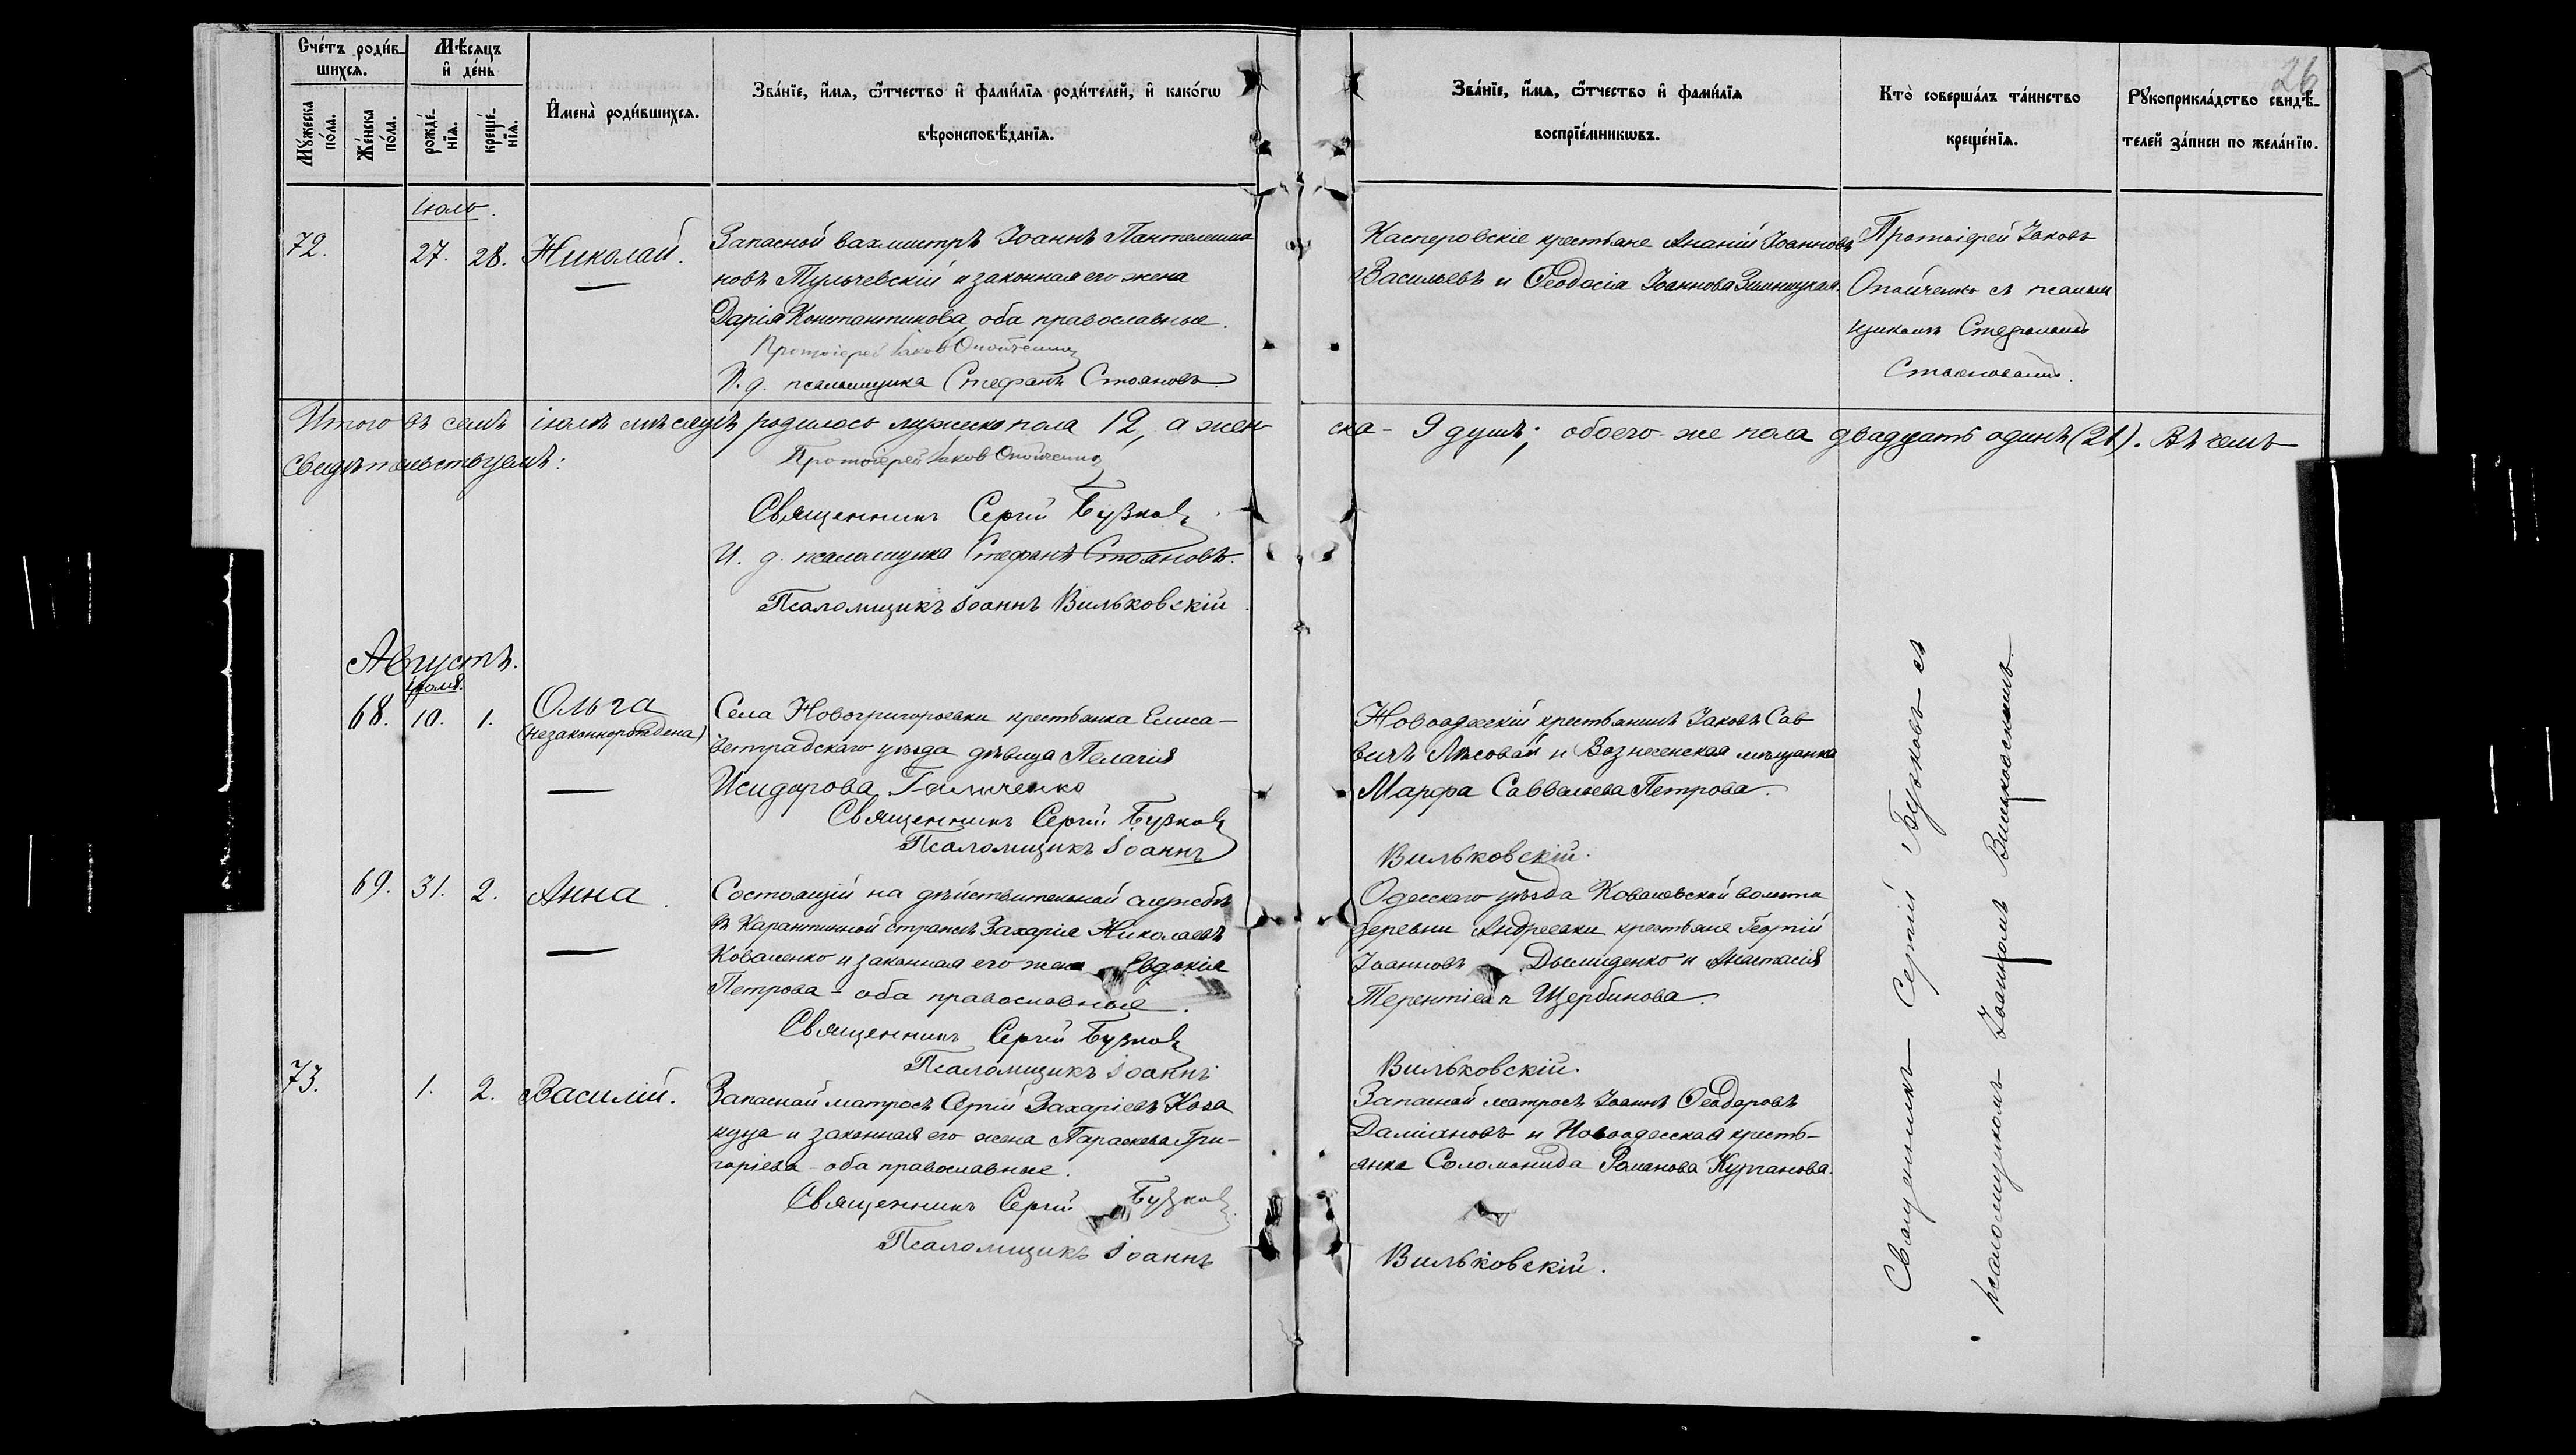 26
Счетъ родив-
шихся.
Мѣсяцъ
и день
Мужеска
пола.
Женска
пола.
рожде-
нія.
креще-
нія.
Имена родившихся.
Званіе, имя, отчество и фамилія родителей, и какого
вѣроисповѣданія.
Званіе, имя, отчество и фамилія
воспріемниковъ.
Кто совершалъ таинство
крещенія.
Рукоприкладство свидѣ-
телей записи по желанію.
Іюль.
72. 27. 28. Николай.
Запасной вахмистръ Іоаннъ Пантелеимо
новъ Тульчевскій и законная его жена
Дарія Константинова, оба православные.
Протоіерей Іаковъ
И. д. псаломщика Стефанъ Стояновъ
Касперовскіе крестьяне Ананій Іоанновъ
Васильевъ и Ѳеодосія Іоаннова
Протоіерей Іаковъ
съ псалом
щикомъ Стефаномъ
Стояновымъ.
Итого въ семъ іюлѣ мѣсяцѣ родилось мужеска пола 12, а жен-
ска - 9 душъ; обоего же пола двадцать одинъ (21). Въ чемъ
свидѣтельствуемъ:
Протоіерей Іаковъ
Священникъ Сергій Бузковъ
И. д. псаломщика Стефанъ Стояновъ.
Псаломщикъ Іоаннъ Вильковскій
Августъ.
Іюля.
68. 10. 1. Ольга
(незаконнорождена)
Села Новогригорьевки крестьянка Елиса-
ветградскаго уѣзда дѣвица Пелагія
Исидорова Гальченко
Священникъ Сергій Бузковъ
Псаломщикъ Іоаннъ
Новоодесскій крестьянинъ Іаковъ Сав
вичъ Лѣсовой и Вознесенская мѣщанка
Марфа Савельева Петрова.
Вильковскій.
69. 31. 2. Анна.
Состоящій на дѣйствительной службѣ
въ Карантинной стражѣ Захарія Николаевъ
Коваленко и законная его жена Евдокія
Петрова - оба православные.
Священникъ Сергій Бузковъ
Псаломщикъ Іоаннъ
Одесскаго уѣзда Ковалевской волости
деревни Андреевки крестьяне Георгій
Іоанновъ Демиденко и Анастасія
Терентіева Щербинова.
Вильковскій.
73. 1. 2. Василій.
Запасной матросъ Сергій Захаріевъ Коза
куца и законная его жена Параскева Гри-
горіева - оба православные.
Священникъ Сергій Бузковъ
Псаломщикъ Іоаннъ
Запасной матросъ Іоаннъ Ѳеодоровъ
Даміановъ и Новоодесская кресть-
янка Соломонида Романова Курганова.
Вильковскій.
Священникъ Сергій Бузковъ съ
псаломщикомъ Іоанномъ Вильковскимъ.